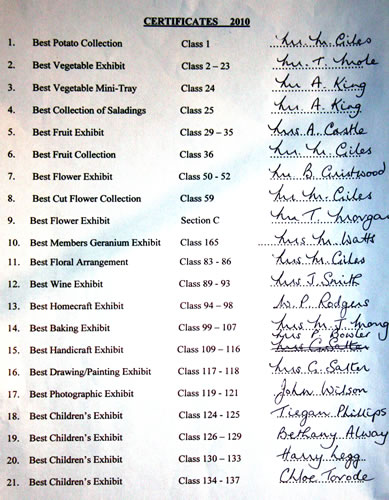 CERTIFICATES 2010
1. Best Potato Collection Class 1 Mr M. Giles
2. Best Vegetable Exhibit Class 2 – 23 Mr T. Mole
3. Best Vegetable Mini-Tray Class 24 Mr A. King
4. Best Collection of Saladings Class 25 Mr A. King
5. Best Fruit Exhibit Class 29 – 35 Mrs A. Castle
6. Best Fruit Collection Class 36 Mr M. Giles
7. Best Flower Exhibit Class 50 - 52 Mr B.
8. Best Cut Flower Collection Class 59 Mr M. Giles
9. Best Flower Exhibit Section C Mr T. Morgan
10. Best Members Geranium Exhibit Class 165 Mrs M. Watts
11. Best Floral Arrangement Class 83 - 86 Mrs M. Giles
12. Best Wine Exhibit Class 89 - 93 Mrs J. Smith
13. Best Homecraft Exhibit Class 94 – 98 P. Rodgers
14. Best Baking Exhibit Class 99 – 107 Mrs M. J.
Mrs P. Bowler
15. Best Handicraft Exhibit Class 109 – 116 Mrs G. Salter
16. Best Drawing/Painting Exhibit Class 117 - 118 Mrs G. Salter
17. Best Photographic Exhibit Class 119 - 121 John Wilson
18. Best Children's Exhibit Class 124 - 125 Tiegan Phillips
19. Best Children's Exhibit Class 126 – 129 Bethany Alway
20. Best Children's Exhibit Class 130 – 133 Harry Legg
21. Best Children's Exhibit Class 134 - 137 Chloe Torode